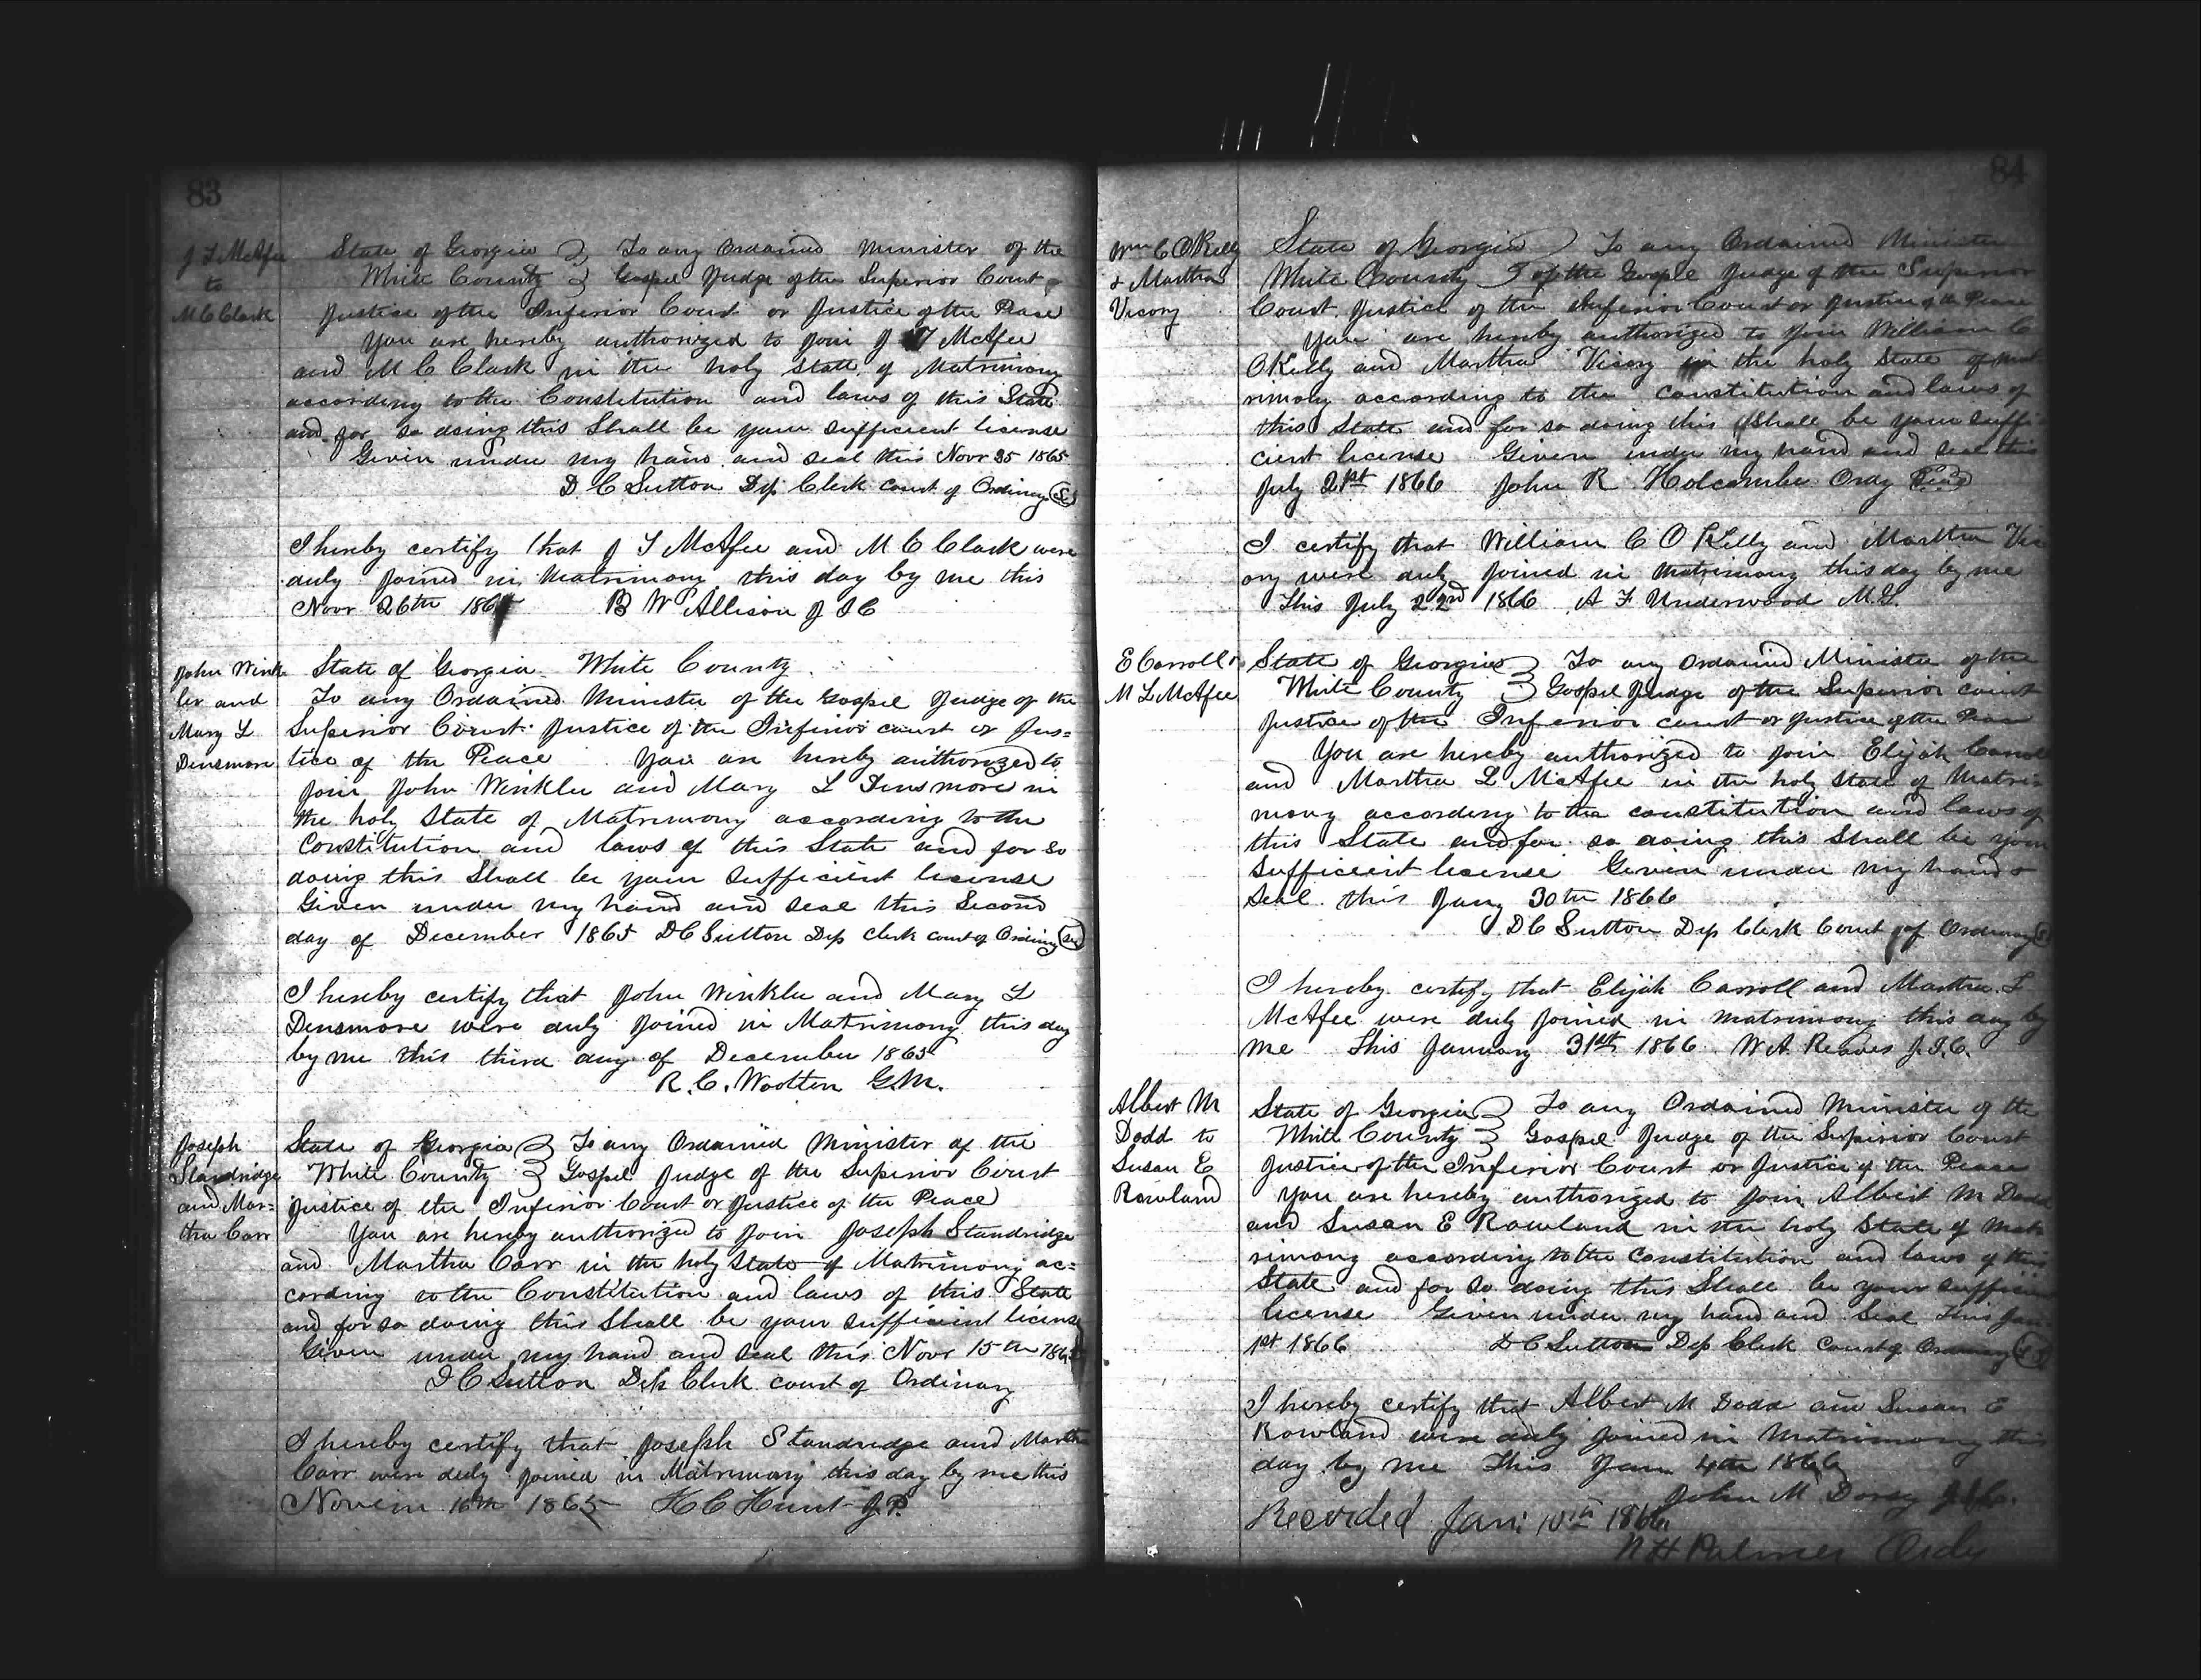 83
J T McAfee
to
M C Clark
State of Georgia } To any Ordained Minister of the
White County } Gospel Judge of the Superior Court
Justice of the Inferior Court or Justice of the Peace
You are hereby authorized to join J T McAfee
and M C Clark in the holy State of Matrimony
according to the Constitution and laws of this State
and for so doing this Shall be your sufficient license
Given under my hand and seal this Novr 25 1865
D C Sutton Dep Clerk Court of Ordinary
I hereby certify that J T McAfee and M C Clark were
duly joined in Matrimony this day by me this
Novr 26th 1865 B W Allison J I C
John Wink
ler and
Mary L
Densmore
State of Georgia White County
To any Ordained Minister of the Gospel Judge of the
Superior Court Justice of the Inferior court or Jus=
tice of the Peace You are hereby authorized to
join John Winkler and Mary L Densmore in
the holy State of Matrimony according to the
Constitution and laws of this State and for so
doing this Shall be your sufficient license
Given under my hand and seal this Second
day of December 1865 D C Sutton Dep Clerk court of Ordinary
I hereby certify that John Winkler and Mary L
Densmore were duly joined in Matrimony this day
by me this third day of December 1865
R. C. Wootten G.M.
Joseph
Standridge
and Mar=
tha Carr
State of Georgia } To any Ordained Minister of the
White County } Gospel Judge of the Superior Court
Justice of the Inferior Court or Justice of the Peace
You are hereby authorized to join Joseph Standridge
and Martha Carr in the holy State of Matrimony ac=
cording to the Constitution and laws of this State
and for so doing this Shall be your sufficient license
Given under my hand and seal this Novr 15th 1865
D C Sutton Dep Clerk court of Ordinary
I hereby certify that Joseph Standridge and Martha
Carr were duly joined in Matrimony this day by me this
Novem 16th 1865 H C Hunt J.P.
84
Wm C OKelly
& Martha
Vicory
State of Georgia } To any Ordained Minister
White County } of the Gospel Judge of the Superior
Court Justice of the Inferior Court or Justice of the Peace
You are hereby authorized to join William C
OKelly and Martha Vicory in the holy State of mat
rimony according to the constitution and laws of
this State and for so doing this Shall be your suffi
cient license Given under my hand and seal this
July 21st 1866 John R Holcombe Ordy
I certify that William C OKelly and Martha Vic
ory were duly joined in matrimony this day by me
This July 22nd 1866 A F Underwood M.G.
E Carroll &
M L McAfee
State of Georgia } To any Ordained Minister of the
White County } Gospel Judge of the Superior court
Justice of the Inferior court or Justice of the Peace
You are hereby authorized to join Elijah Carroll
and Martha L McAfee in the holy State of Matri-
mony according to the constitution and laws of
this State and for so doing this Shall be your
sufficient license Given under my hand &
seal this Jany 30th 1866
D C Sutton Dep Clerk Court of Ordinary
I hereby certify that Elijah Carroll and Martha L
McAfee were duly joined in matrimony this day by
me This January 31st 1866 W A Reaves J.I.C.
Albert M
Dodd to
Susan E
Rowland
State of Georgia } To any Ordained Minister of the
White County } Gospel Judge of the Superior Court
Justice of the Inferior Court or Justice of the Peace
You are hereby authorized to join Albert M Dodd
and Susan E Rowland in the holy State of mat
rimony according to the Constitution and laws of this
State and for so doing this Shall be your sufficient
license Given under my hand and Seal This Jan
1st 1866 D C Sutton Dep Clerk Court of Ordinary
I hereby certify that Albert M Dodd and Susan E
Rowland were duly joined in Matrimony this
day by me This Jan 4th 1866
John M Dorsy J.I.C.
Recorded Jan: 10th 1866
W H Palmer Ordy